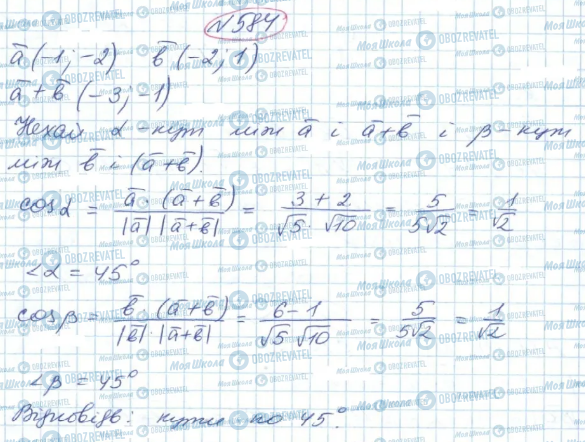 №584
a̅(-1; -2)   b̅(-2; 1)
a̅+b̅(-3; -1)
Нехай α-кут між a̅ і a̅+b̅ і β-кут
між b̅ і (a̅+b̅).
cosα = a̅·(a̅+b̅) / |a̅| |a̅+b̅| = 3+2 / √5·√10 = 5 / 5√2 = 1 / √2
∠α = 45°
cosβ = b̅·(a̅+b̅) / |b̅|·|a̅+b̅| = 6-1 / √5 √10 = 5 / 5√2 = 1 / √2
∠β = 45°
Відповідь: кути по 45°.